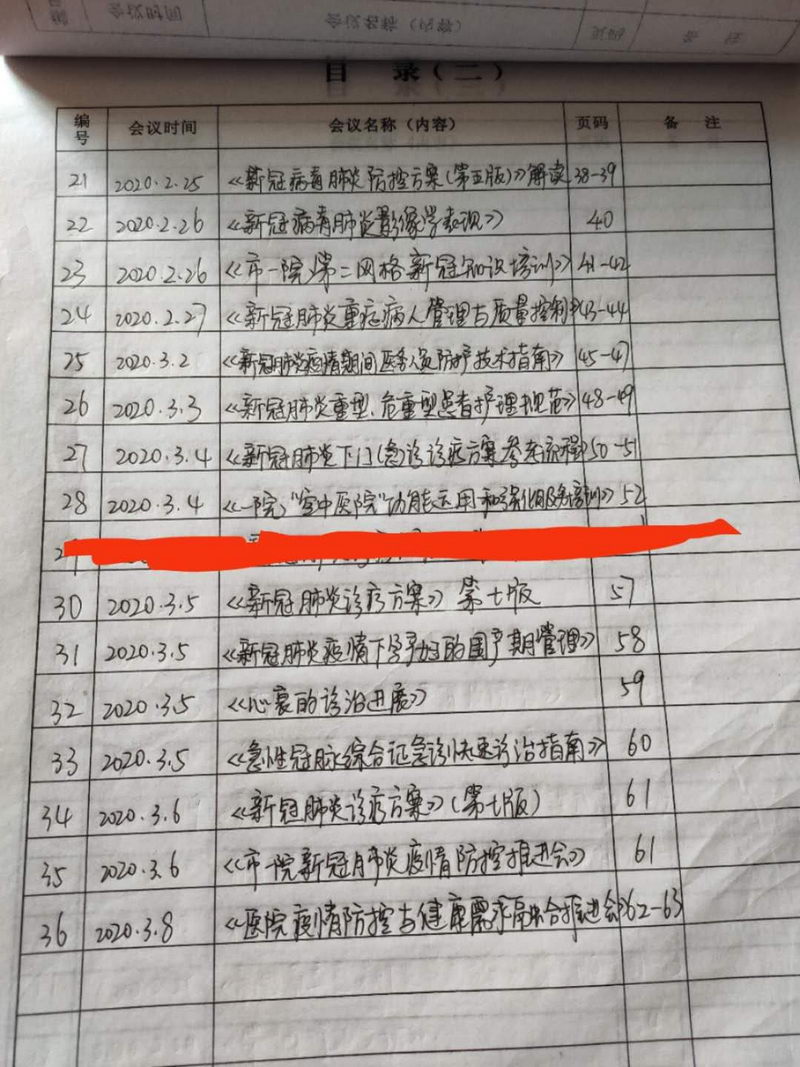 目 录（二）
编号 会议时间 会议名称（内容） 页码 备 注
21 2020.2.25 《新冠病毒肺炎防控方案（第五版）》解读 38-39
22 2020.2.26 《新冠病毒肺炎影像学表现》 40
23 2020.2.26 《市一院第二网格新冠知识培训》 41-42
24 2020.2.27 《新冠肺炎重症病人管理与质量控制》 43-44
25 2020.3.2 《新冠肺炎疫情期间医务人员防护技术指南》 45-47
26 2020.3.3 《新冠肺炎重型、危重型患者护理规范》 48-49
27 2020.3.4 《新冠肺炎下门（急）诊诊疗方案参考流程》 50-51
28 2020.3.4 《一院"空中医院"功能运用和强化服务培训》 52
29
30 2020.3.5 《新冠肺炎诊疗方案》第七版 57
31 2020.3.5 《新冠肺炎疫情下孕妇的围产期管理》 58
32 2020.3.5 《心衰的诊治进展》 59
33 2020.3.5 《急性冠脉综合证急诊快速诊治指南》 60
34 2020.3.6 《新冠肺炎诊疗方案》（第七版） 61
35 2020.3.6 《市一院新冠肺炎疫情防控推进会》 61
36 2020.3.8 《医院疫情防控与健康需求高 合推进会》 62-63